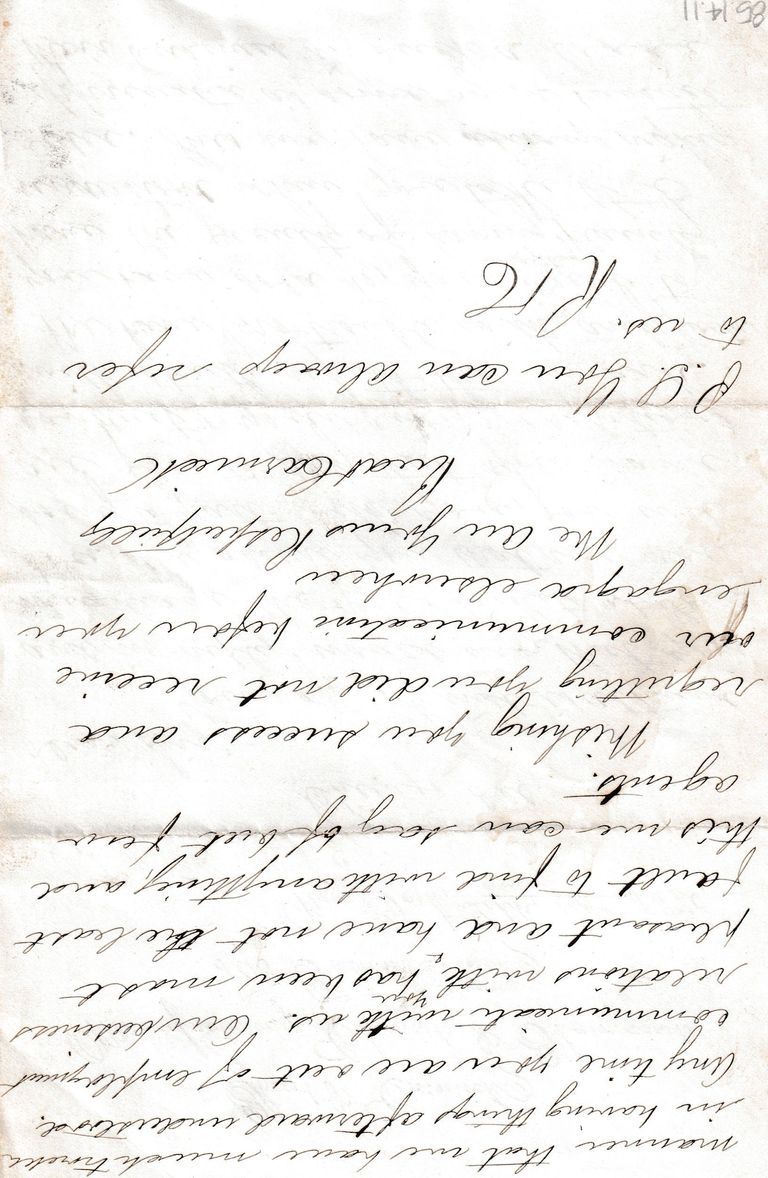 manner that we have much trouble
in having things afterward understood.
Any time you are out of employment
communicate with us. Our business
relations with you has been most
pleasant and have not the least
fault to find with anything, and
this we can say of but few
agents.
Wishing you success and
regretting you did not receive
our communication before you
engaged elsewhere
We are Yours Respectfully
P.S. You can always refer
to us.
85.14.11